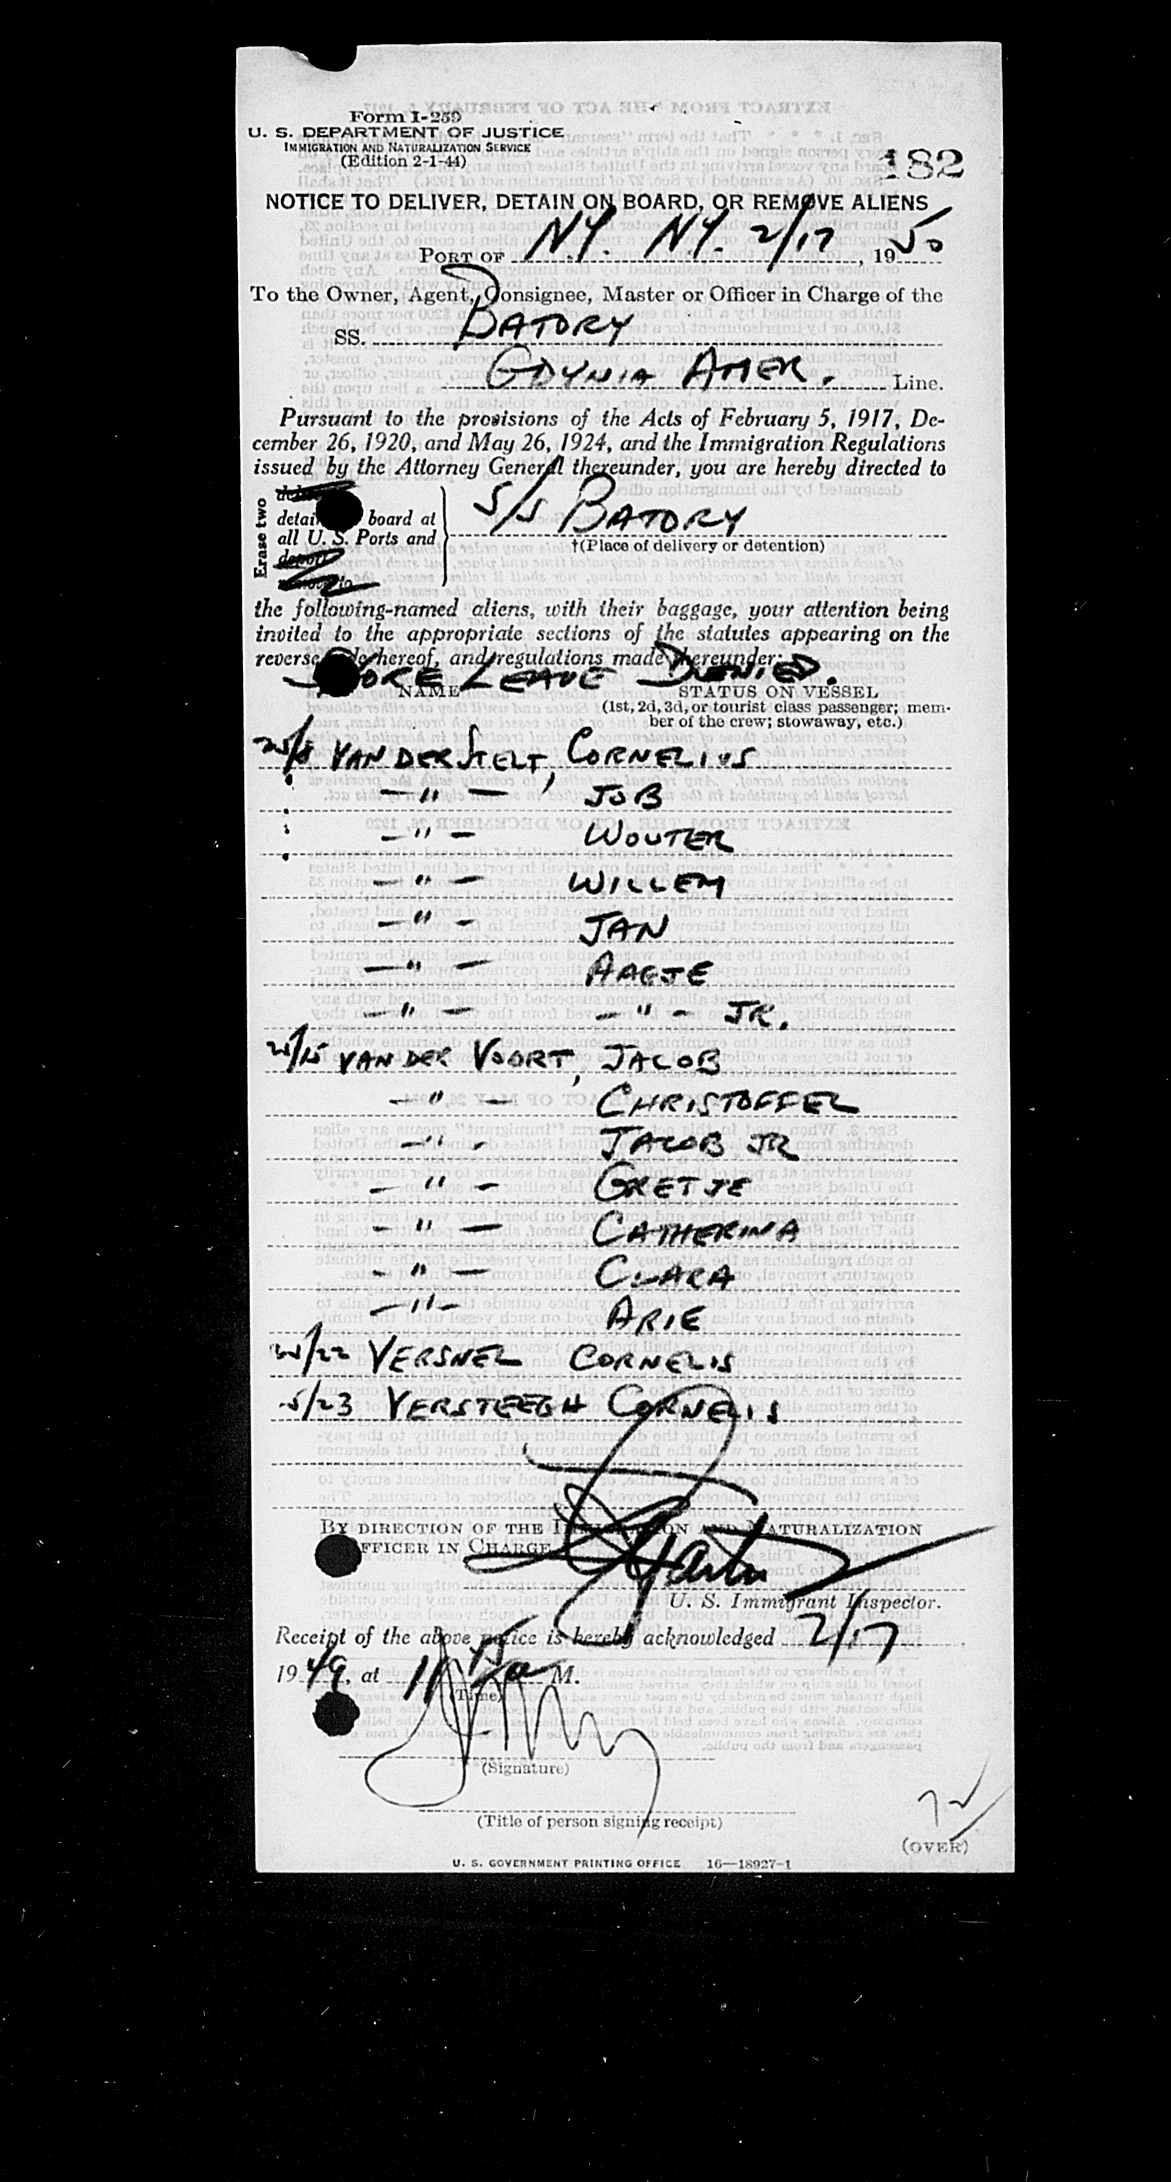 Form I-259
U. S. DEPARTMENT OF JUSTICE
IMMIGRATION AND NATURALIZATION SERVICE
(Edition 2-1-44)
182
NOTICE TO DELIVER, DETAIN ON BOARD, OR REMOVE ALIENS
PORT OF NY. NY. 2/17, 1950
To the Owner, Agent, Consignee, Master or Officer in Charge of the
SS. BATORY
GDYNIA AMER. Line.
Pursuant to the provisions of the Acts of February 5, 1917, De-
cember 26, 1920, and May 26, 1924, and the Immigration Regulations
issued by the Attorney General thereunder, you are hereby directed to
Erase two
detain board at
all U. S. Ports and
S/S BATORY
†(Place of delivery or detention)
the following-named aliens, with their baggage, your attention being
invited to the appropriate sections of the statutes appearing on the
reverse hereof, and regulations made thereunder:
SHORE LEAVE DENIED.
NAME STATUS ON VESSEL
(1st, 2d, 3d, or tourist class passenger; mem-
ber of the crew; stowaway, etc.)
VAN DER STELT, CORNELIUS
—"— JOB
—"— WOUTER
—"— WILLEM
—"— JAN
—"— AAGJE
—"— —"— JR.
VAN DER VOORT, JACOB
—"— CHRISTOFFEL
—"— JACOB JR
—"— GRETJE
—"— CATHERINA
—"— CLARA
—"— ARIE
25/22 VERSNEL CORNELIS
5/23 VERSTEEGH CORNELIS
BY DIRECTION OF THE IMMIGRATION AND NATURALIZATION
OFFICER IN CHARGE
U. S. Immigrant Inspector.
Receipt of the above notice is hereby acknowledged 2/17
1949, at M.
(Time)
(Signature)
(Title of person signing receipt)
(OVER)
U. S. GOVERNMENT PRINTING OFFICE 16—18927-1